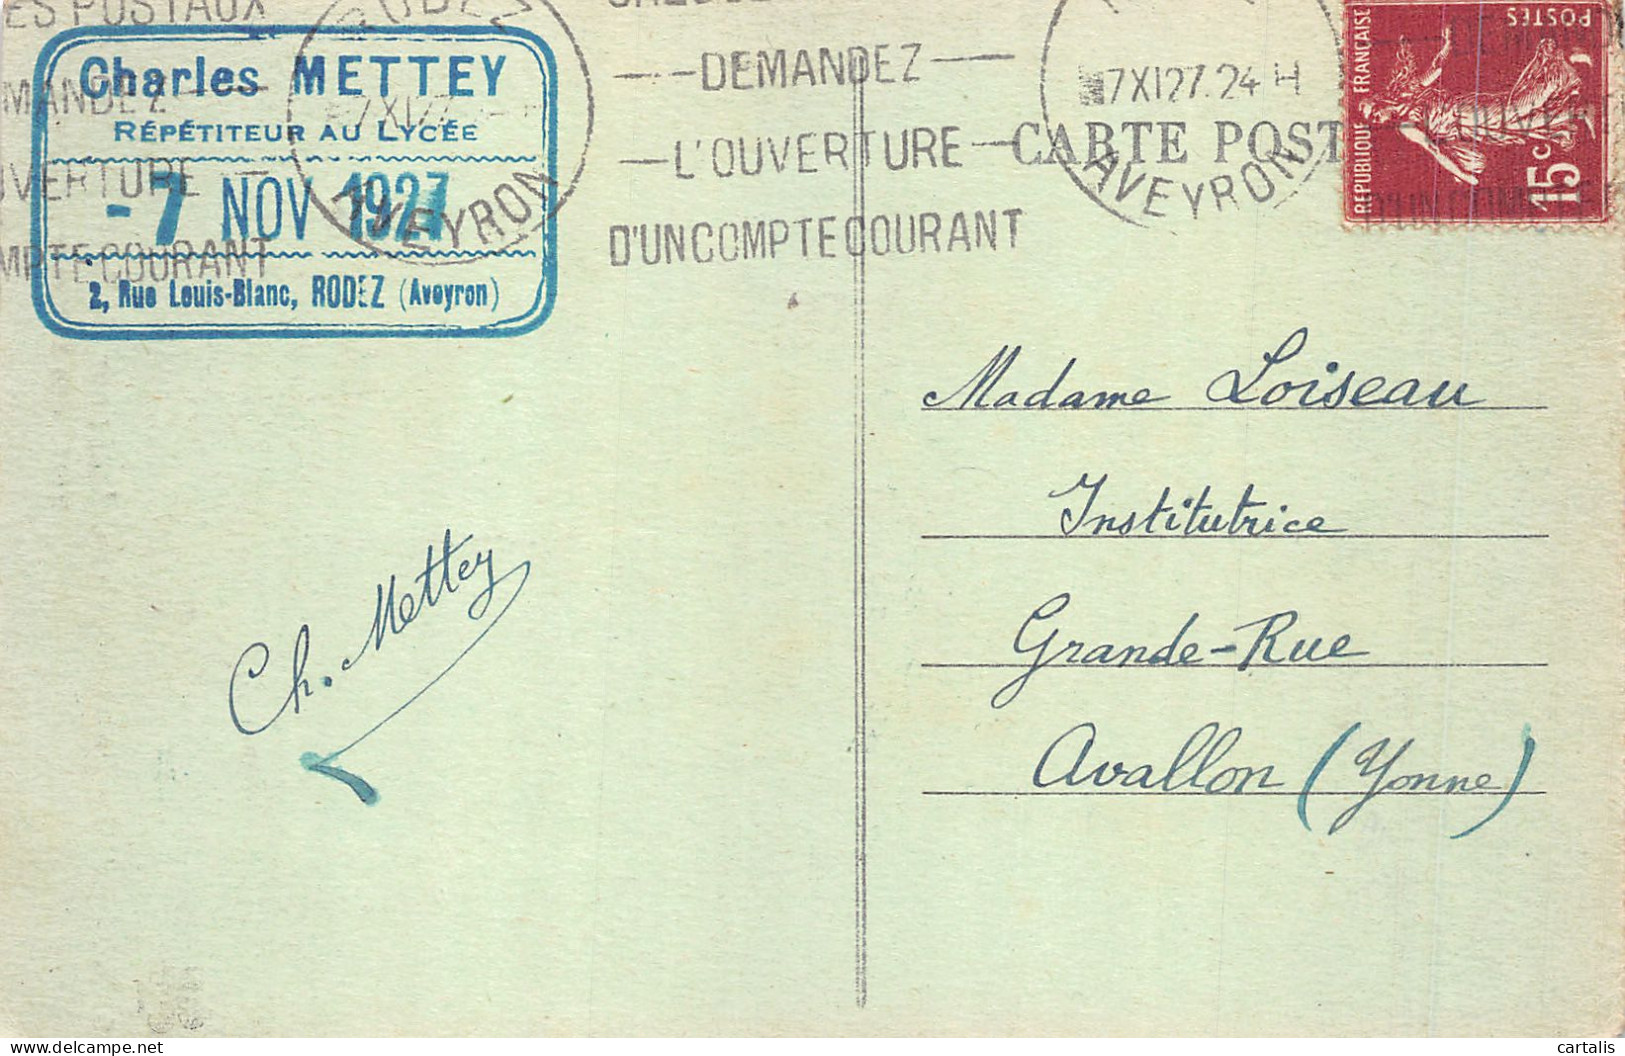 ES POSTAUX
MANDEZ
UVERTURE
MPTE COURANT
Charles METTEY
RÉPÉTITEUR AU LYCÉE
-7 NOV 1927
2, Rue Louis-Blanc, RODEZ (Aveyron)
RODEZ
7 XI 27
AVEYRON
DEMANDEZ
L'OUVERTURE
D'UN COMPTE COURANT
7 XI 27. 24 H
AVEYRON
CARTE POST
REPUBLIQUE FRANÇAISE
POSTES
15c
Madame Loiseau
Institutrice
Grande-Rue
Avallon (Yonne)
Ch. Mettey
cartalis
delcampe.net